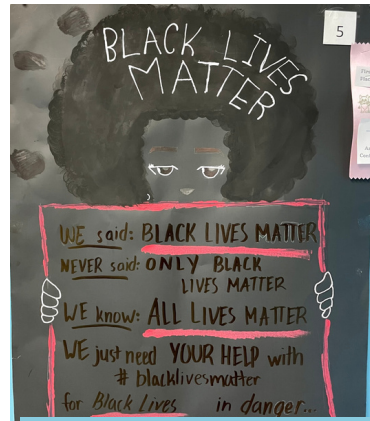 5
BLACK LIVES
MATTER
WE said: BLACK LIVES MATTER
NEVER said: ONLY BLACK
LIVES MATTER
WE know: ALL LIVES MATTER
WE just need YOUR HELP with
# blacklivesmatter
for Black Lives in danger...